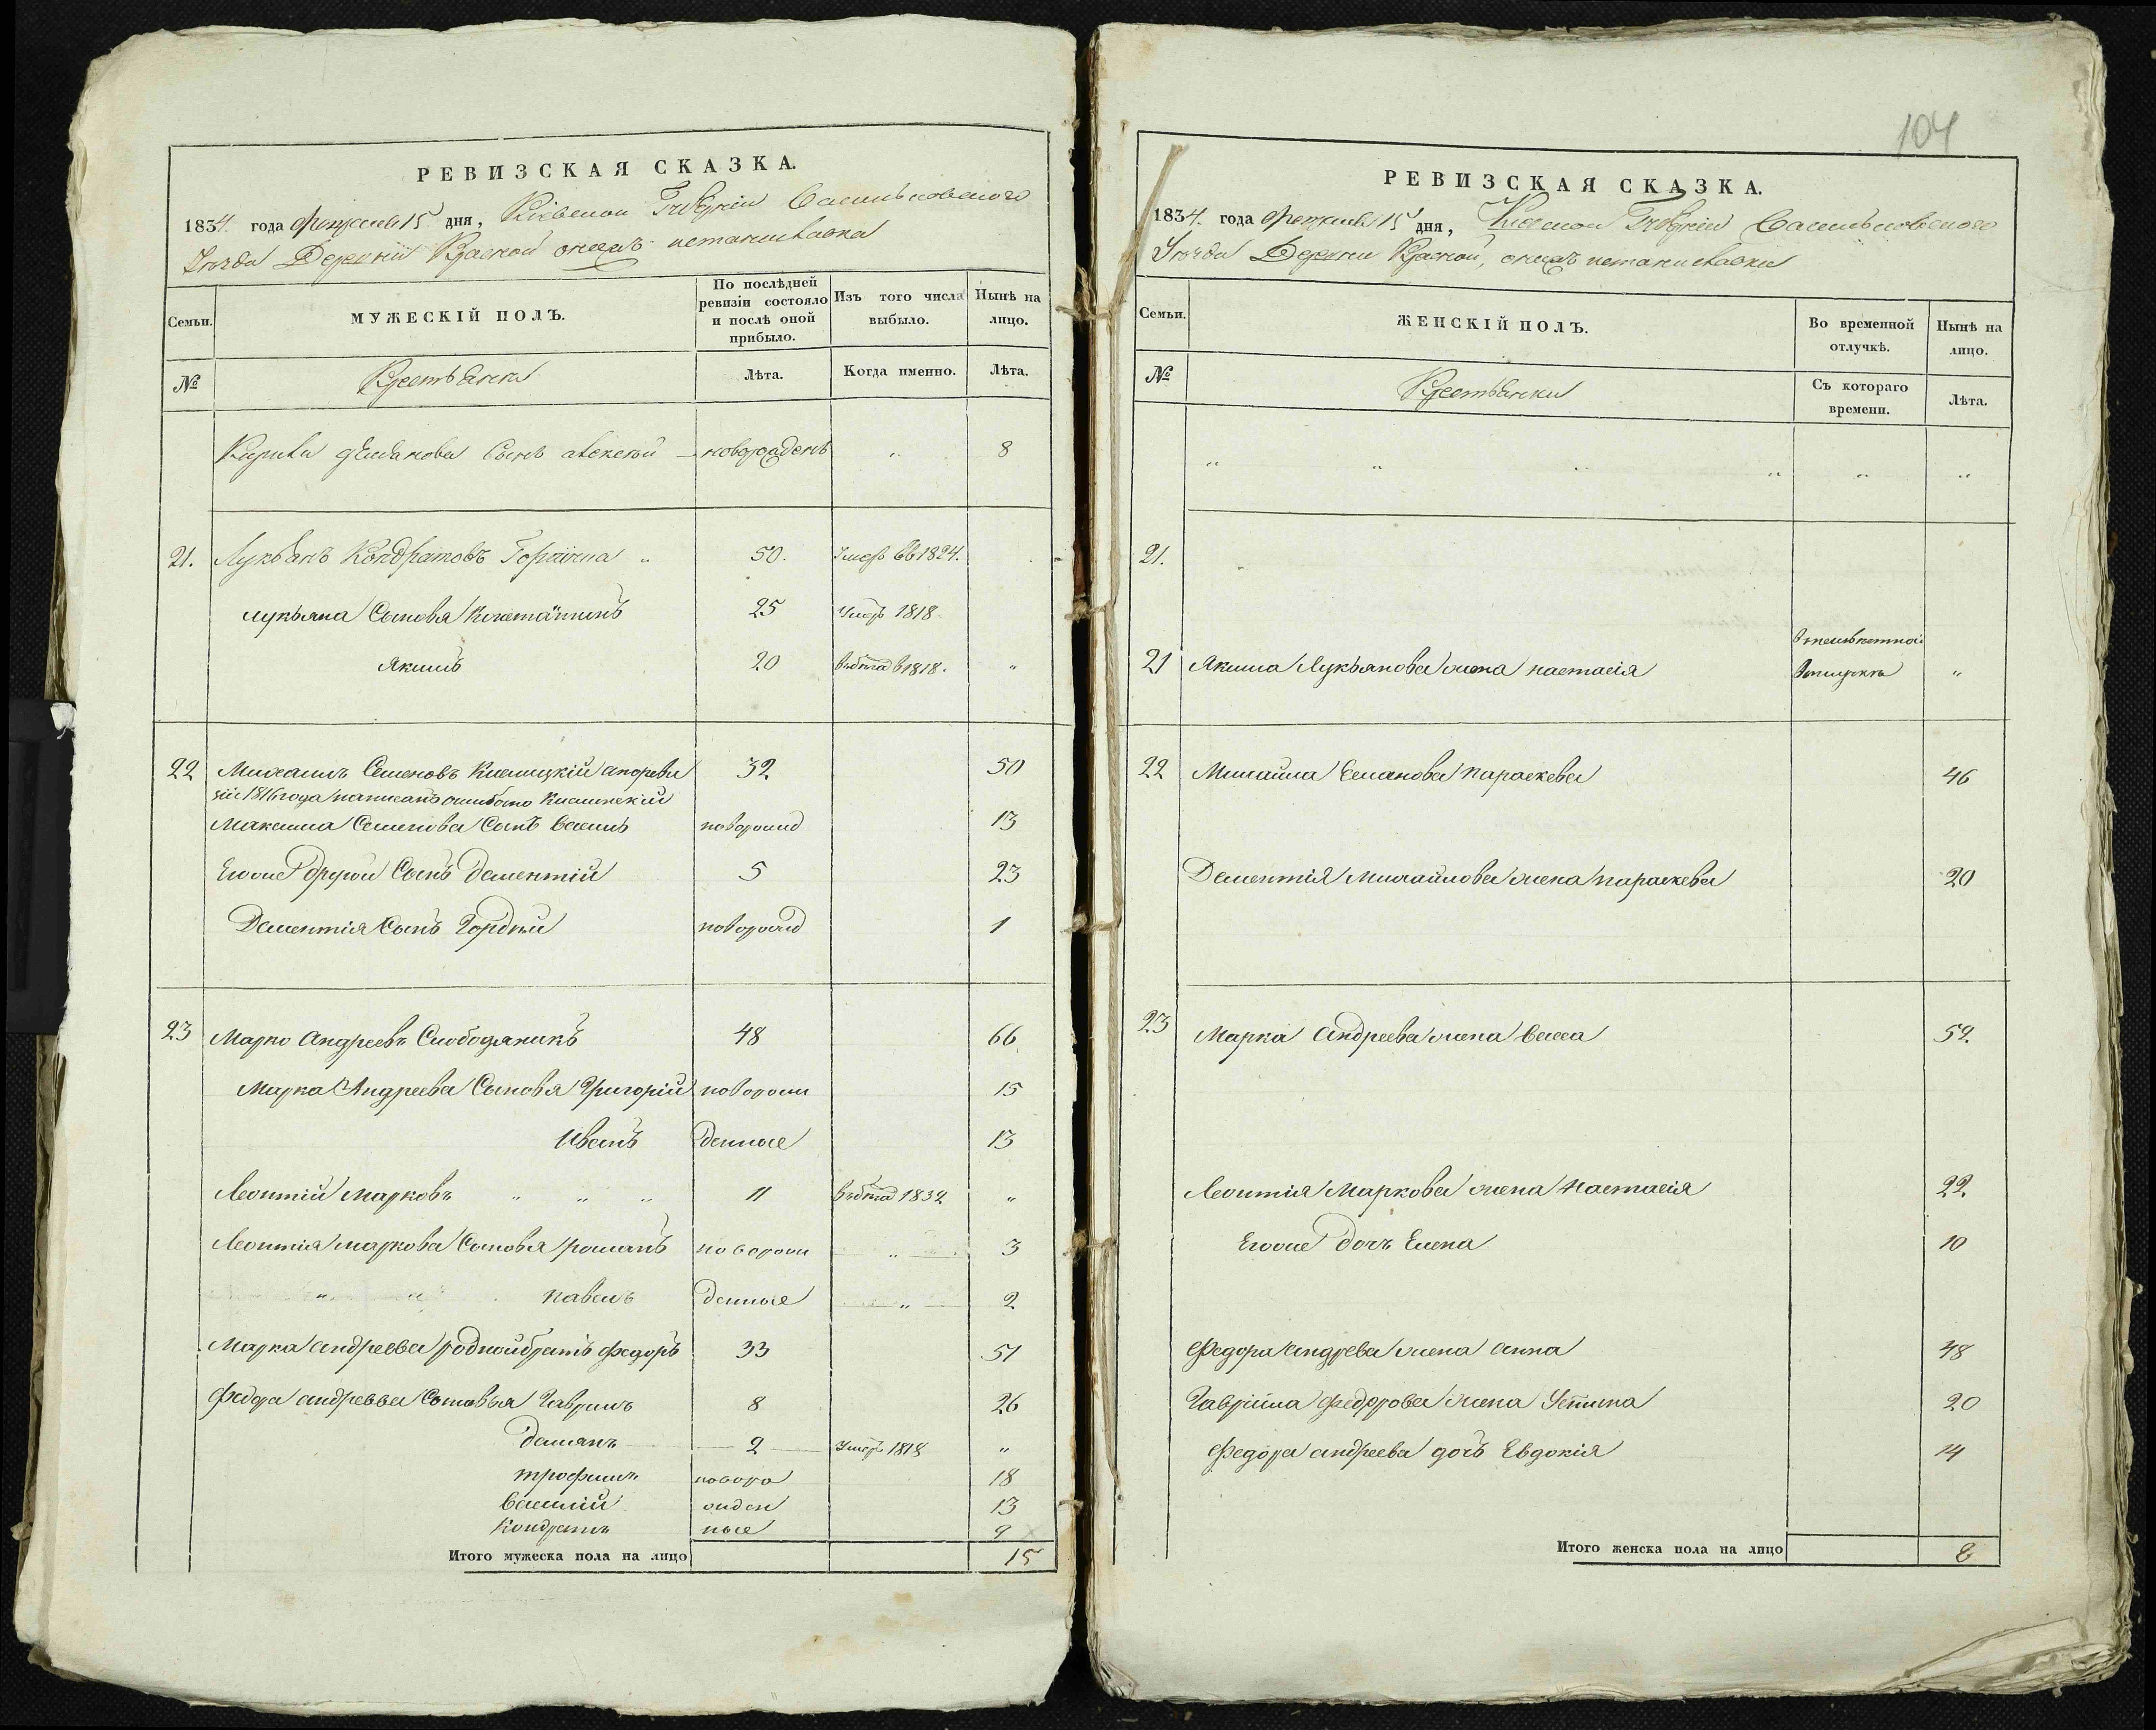 РЕВИЗСКАЯ СКАЗКА.
1834. года февраля 15 дня, Кіевской Губерніи Васильковскаго
Уѣзда Деревни Красной
Семьи. МУЖЕСКІЙ ПОЛЪ. По послѣдней ревизіи состояло и послѣ оной прибыло. Изъ того числа выбыло. Нынѣ на лицо.
№ Крестьяни Лѣта. Когда именно. Лѣта.
Кирила Сынъ алексѣй новорожденъ " 8
21. Лукьянъ Кондратовъ " 50. Умеръ въ 1824.
лукьяна Сыновья Констанътинъ 25 Умеръ 1818
Якимъ 20 въ бѣга въ 1818. "
22 Михаилъ Семеновъ 32 50
зіи 1816 года написанъ ошибочно
Максима Семенова Сынъ Василь новорожд 13
Егоже другой Сынъ Дементій 5 23
Дементія Сынъ Гордѣй новорожд 1
23 Марко Андреевъ Слободяникъ 48 66
Марка Андреева Сыновья Григорій новорож 15
Иванъ денные 13
Леонтій Марковъ " " " 11 въ бѣга 1832 "
Леонтія маркова Сыновья романъ новорож " 3
" " павелъ денные " 2
Марка андреева родной братъ федоръ 33 51
Федора андреева Сыновья Гаврилъ 8 26
Демянъ 2 Умеръ 1818 "
трофимъ новоро 18
Василій жден 13
Кондратъ ные 9
Итого мужеска пола на лицо 15
104
РЕВИЗСКАЯ СКАЗКА.
1834. года февраля 15 дня, Кіевской Губерніи Васильковскаго
Уѣзда Деревни Красной,
Семьи. ЖЕНСКІЙ ПОЛЪ. Во временной отлучкѣ. Нынѣ на лицо.
№ Крестьянки Съ котораго времени. Лѣта.
" " " " "
21.
21 Якима Лукьянова жена настасія "
22 Михайла Семенова параскева 46
Дементія Михайлова жена параскева 20
23 Марка Андреева жена Васса 52
Леонтія Маркова жена Настасія 22
Егоже дочь Елена 10
Федора андреева жена анна 48
Гаврійла федорова жена 20
Федора андреева дочь Евдокія 14
Итого женска пола на лицо 8